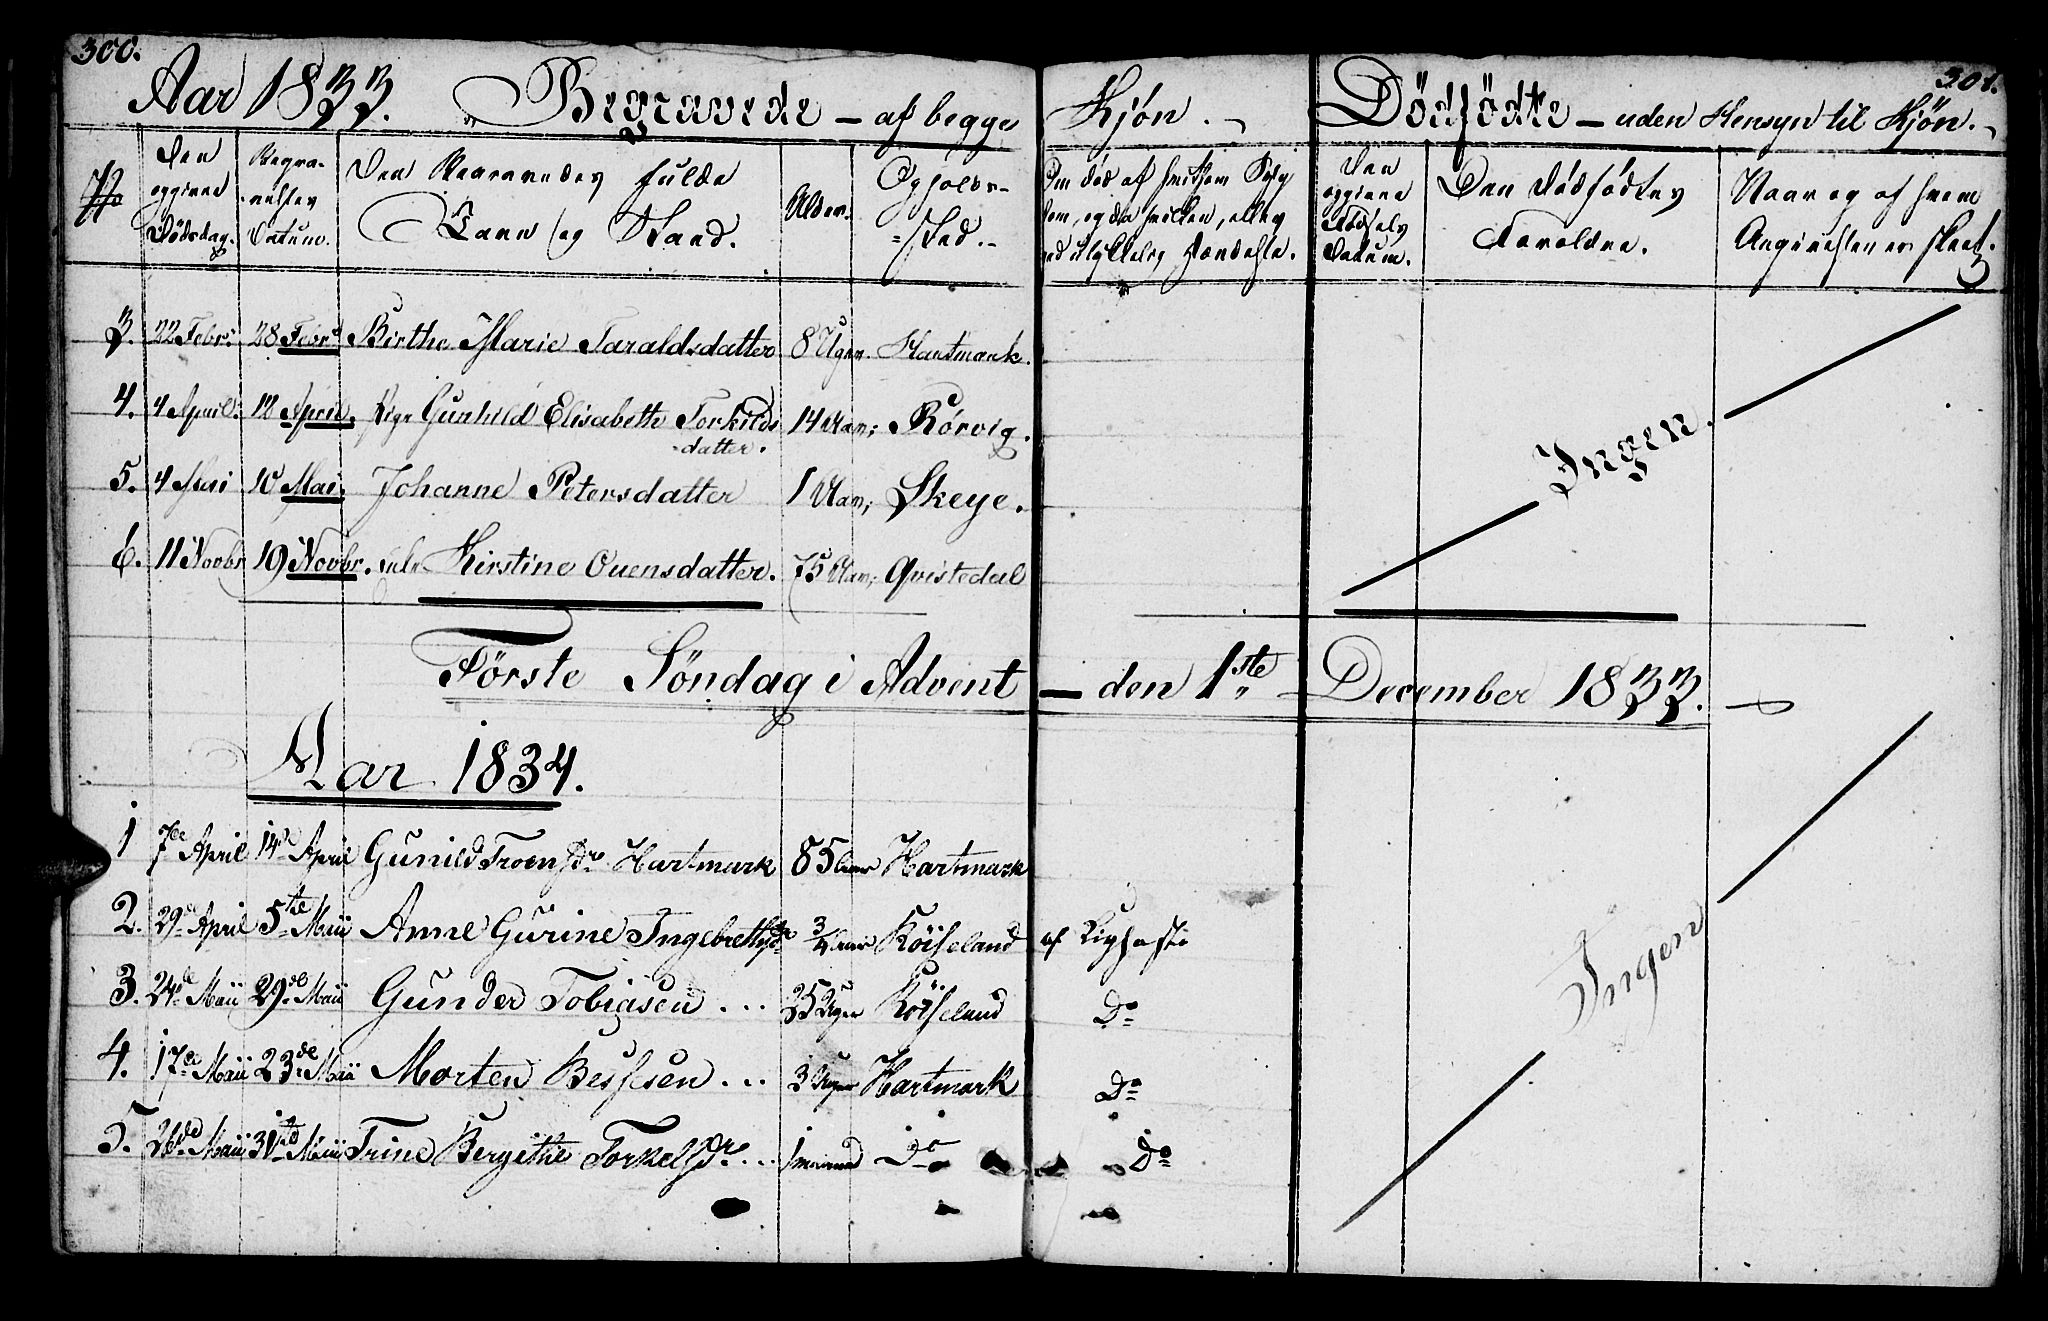 300.
301.
Aar 1833. Begravede — af begge Kjøn. Dödfödte — uden Hensyn til Kjön.
No
Den opgivne Dödsdag.
Begravelses Datum.
Den Begravedes fulde Navn og Stand.
Alder.
Opholds-Sted.
Om død af Sygdom, og da hvilken, eller ved ulykkelig Hændelse.
Den opgivne Födsels Datum.
Den Dödfödtes Forældre.
Naar og af hvem Angivelsen er skeet.
3. 22 Febr: 28 Febr: Birthe Marie Taraldsdatter 8 Uger. Hartmark.
4. 4 April. 12 April. Pige Gunhild Elisabeth Torkilds 14 Aar; Rörvig.
-datter.
5. 4 Mai 10 Mai. Johanne Petersdatter 1 Aar; Skeye.
6. 11 Novbr 19 Novbr. Kirstine Ouensdatter. 75 Aar; Qvistedal
Ingen.
Förste Söndag i Advent — den 1ste December 1833.
Aar 1834.
1 7de April 14de April Gunild Troensdr. Hartmark 85 Aar Hartmark
2. 29de April 5te Maii Anne Gurine Ingebrethsdr 3/4 Aar Köiseland af Kighoste
3. 24de Maii 29de Maii Gunder Tobiasen ... 35 Uger Köiseland Do
4. 17de Maii 23de Maii Morten Bessesen ... 3 Uger Hartmark Do
5. 26de Maii 31te Maii Trine Bergithe Torkelsdr. ... 1 maaned Do Do
Ingen